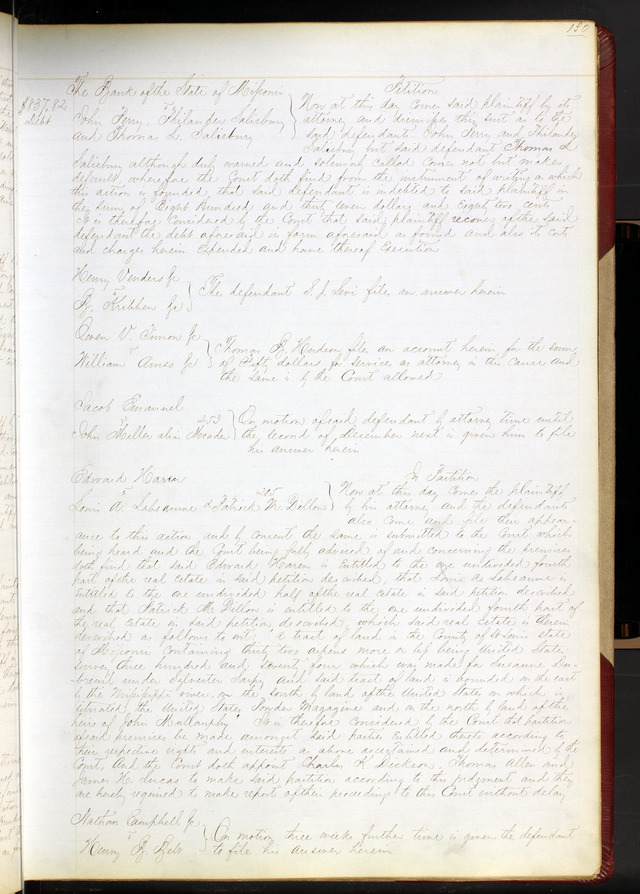 130
The Bank of the State of Missouri Petition
$837.82 Debt
vs
John Perry, Philander Salisbury
and Thomas L. Salisbury
Now at this day comes said plaintiff by its
attorney and dismisses this suit as to the
said defendants John Perry and Philander
Salisbury but said defendant Thomas L
Salisbury although duly warned and solemnly called comes not but makes
default, wherefore the Court doth find from the instrument of writing on which
this action is founded, that said defendant is indebted to said plaintiff in
the sum of Eight Hundred and thirty seven dollars and Eighty two cents
It is therefore Considered by the Court that said plaintiff recover of the said
defendant the debt aforesaid in form aforesaid as found and also its costs
and charges herein expended and have thereof Execution
Henry
vs
The defendant S. J. Levi files an answer herein
Owen V. Timon
vs
William Ames
Thomas B. Hudson files an account herein for the sum
of Fifty dollars for services as attorney in this cause and
the same is by the Court allowed
Jacob Emanuel
vs 253
John alias
On motion of said defendant by attorney time until
the second of December next is given him to file
his answer herein
Edward Haren In Partition
vs 206
Louis A. Labeaume & Patrick M. Dillon
Now at this day comes the plaintiff
by his attorney and the defendants
also come and file their appear-
ance to this action and by consent the same is submitted to the Court which
being heard and the Court being fully advised of and concerning the premises
doth find that said Edward Haren is entitled to the one undivided fourth
part of the real estate in said petition described, that Louis A. Labeaume is
entitled to the one undivided half of the real estate in said petition described
and that Patrick M. Dillon is entitled to the one undivided fourth part of
the real estate in said petition described, which said real estate is therein
described as follows to wit: "A tract of land in the County of St Louis state
of Missouri containing thirty two arpens more or less being United States
survey three hundred and seventy four which was made for Susanne Du-
breuil under Sylvester Sarpy and said tract of land is bounded on the east
by the Mississippi river, on the south by land of the United States on which is
situated the United States Powder Magazine and on the north by land of the
heirs of John Mullanphy" It is therefore considered by the Court that partition
of said premises be made amongst said parties entitled thereto according to
their respective rights and interests as above ascertained and determined by the
Court. And the Court doth appoint Charles K. Dickson, Thomas Allen and
James H. Lucas to make said partition according to this judgment and they
are hereby required to make report of their proceedings to this Court without delay
Nathan Campbell
vs
Henry B.
On motion three weeks further time is given the defendant
to file his answer herein